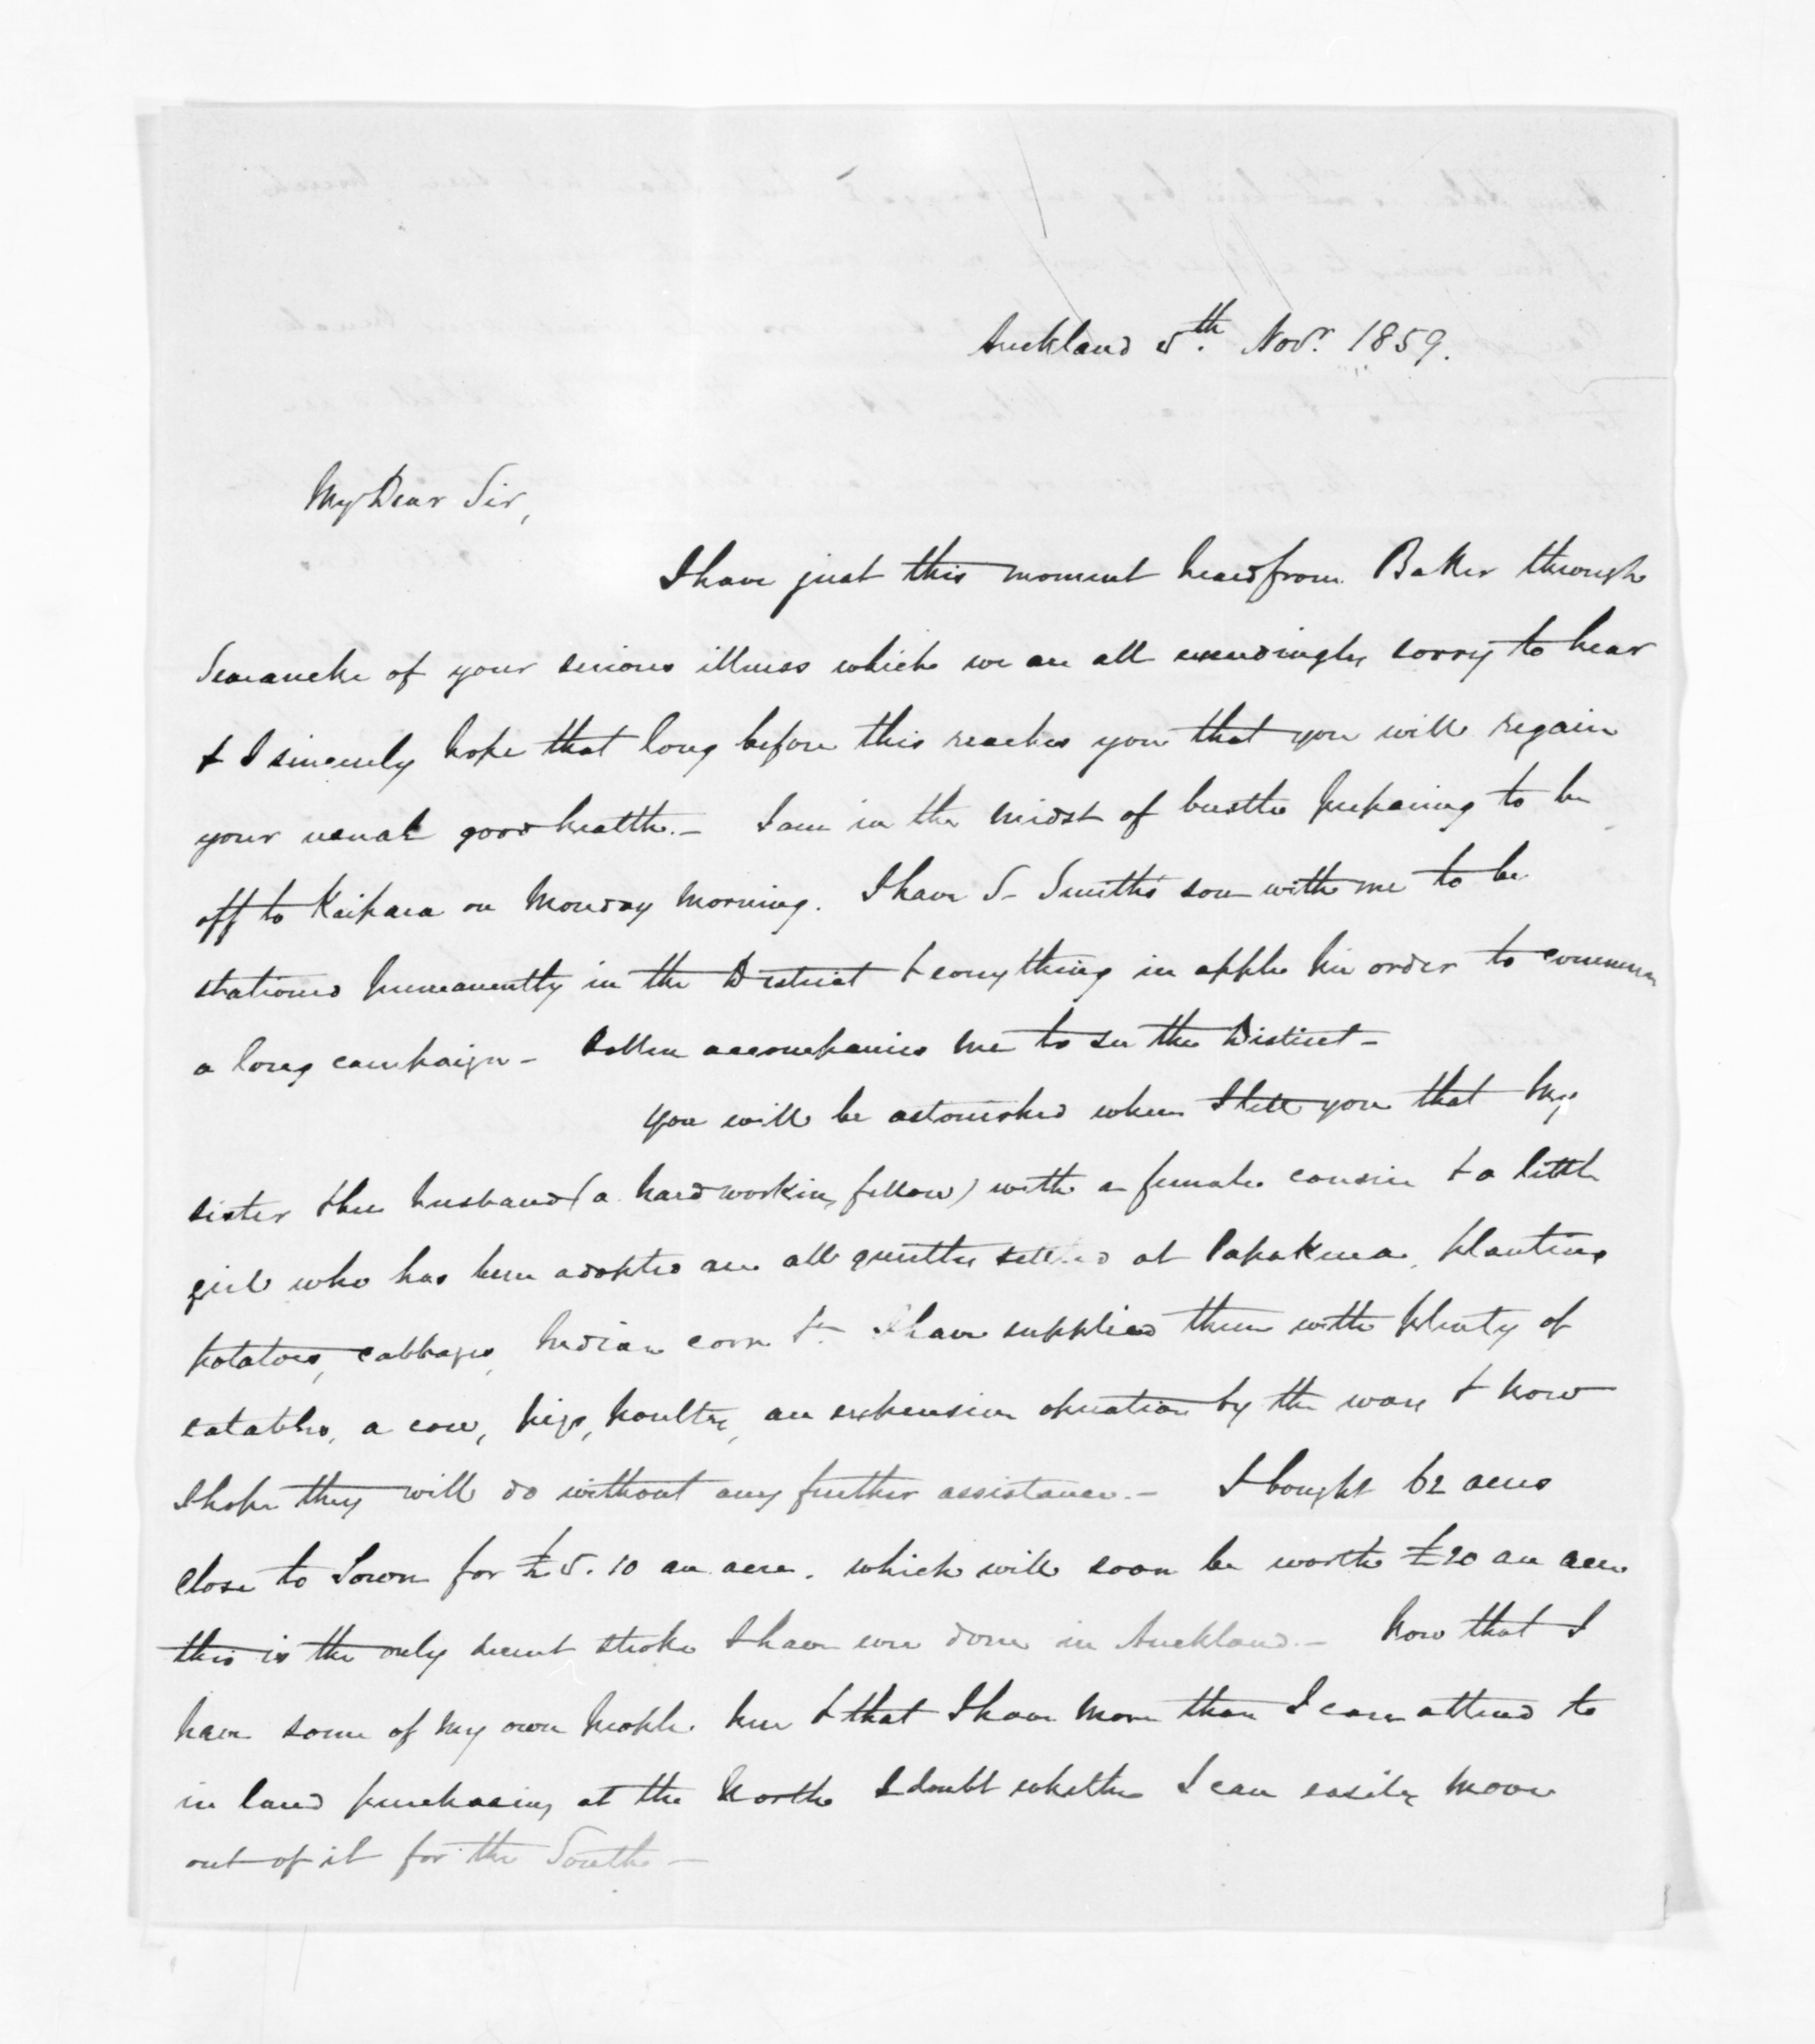 Auckland 5th. Novr. 1859.
My Dear Sir,
I have just this moment heard from Baker through
Searancke of your serious illness which we are all exceedingly sorry to hear
& I sincerely hope that long before this reaches you that you will regain
your usual good health. — I am in the midst of bustle preparing to be
off to Kaipara on Monday morning. I have S- Smith's son with me to be
stationed permanently in the District & everything in apple pie order to commence
a long campaign — Rollen accompanies me to see the District —
You will be astonished when I tell you that my
sister & her husband (a hard working fellow) with a female cousin & a little
girl who has been adopted are all quietly settled at Papakura, planting
potatoes, cabbages, Indian corn &c I have supplied them with plenty of
eatables, a cow, pigs, poultry, an expensive operation by the way & now
I hope they will do without any further assistance. — I bought 62 acres
close to Town for £5.10 an acre. which will soon be worth £20 an acre
this is the only decent stroke I have ever done in Auckland. — Now that I
have some of my own people here & that I have more than I can attend to
in land purchasing at the North I doubt whether I can easily move
out of it for the South —